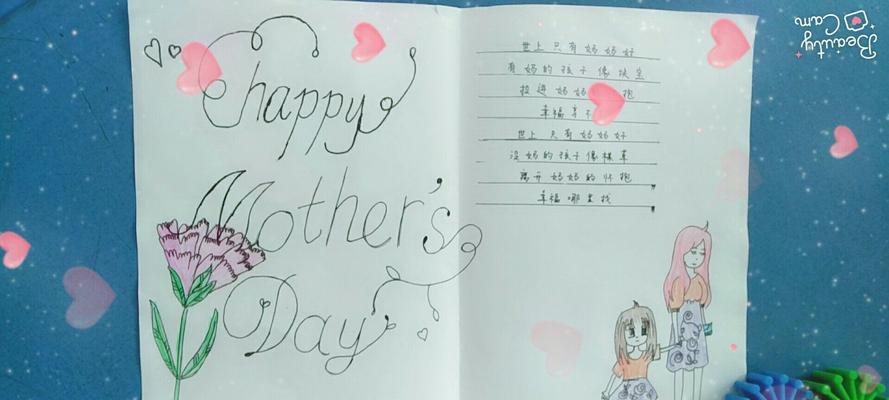 happy
Mother's
Day
世上只有妈妈好
有妈的孩子像块宝
投进妈妈 抱
幸福享不
世上只有妈妈好
没妈的孩子像棵草
离开妈妈的怀抱
幸福哪里找
Beauty
Cam